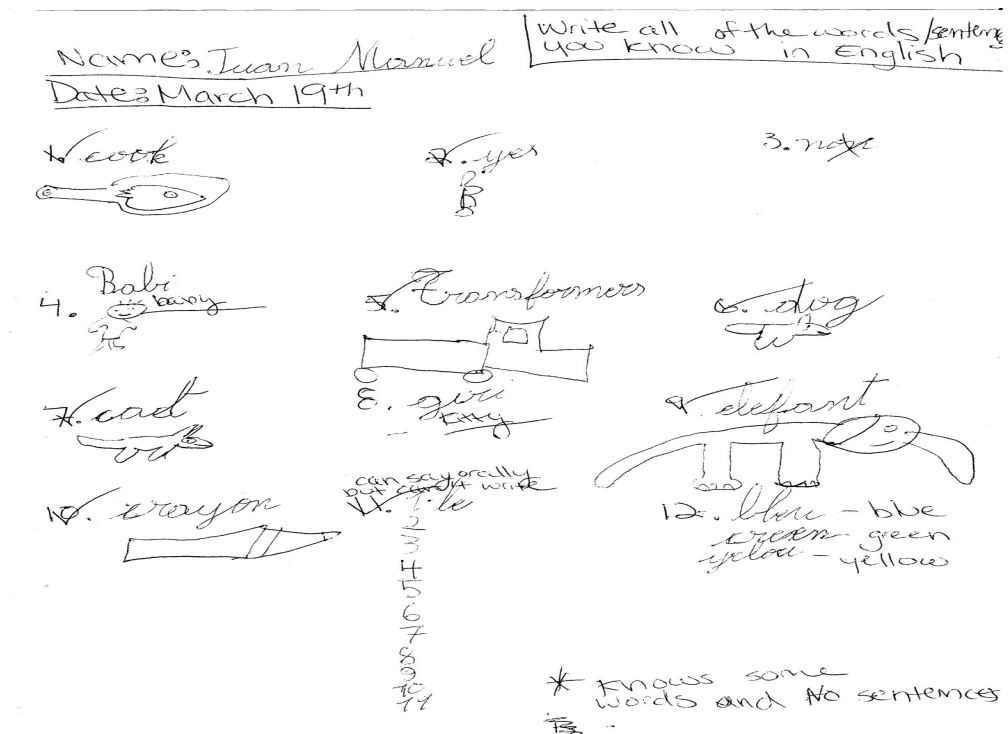 Name: Juan Manuel
Write all of the words/sentenc
you know in English
Date: March 19th
1. cook
2. yes
3. not
4. Babi
baby
5. Transformers
6. dog
7. cat
8. giri
kitty
9. elefant
10. crayon
can say orally
but can't write
11. 1
2
3
4
5
6
7
8
9
10
11
12. blue - blue
green - green
yelou - yellow
* knows some
words and No sentences